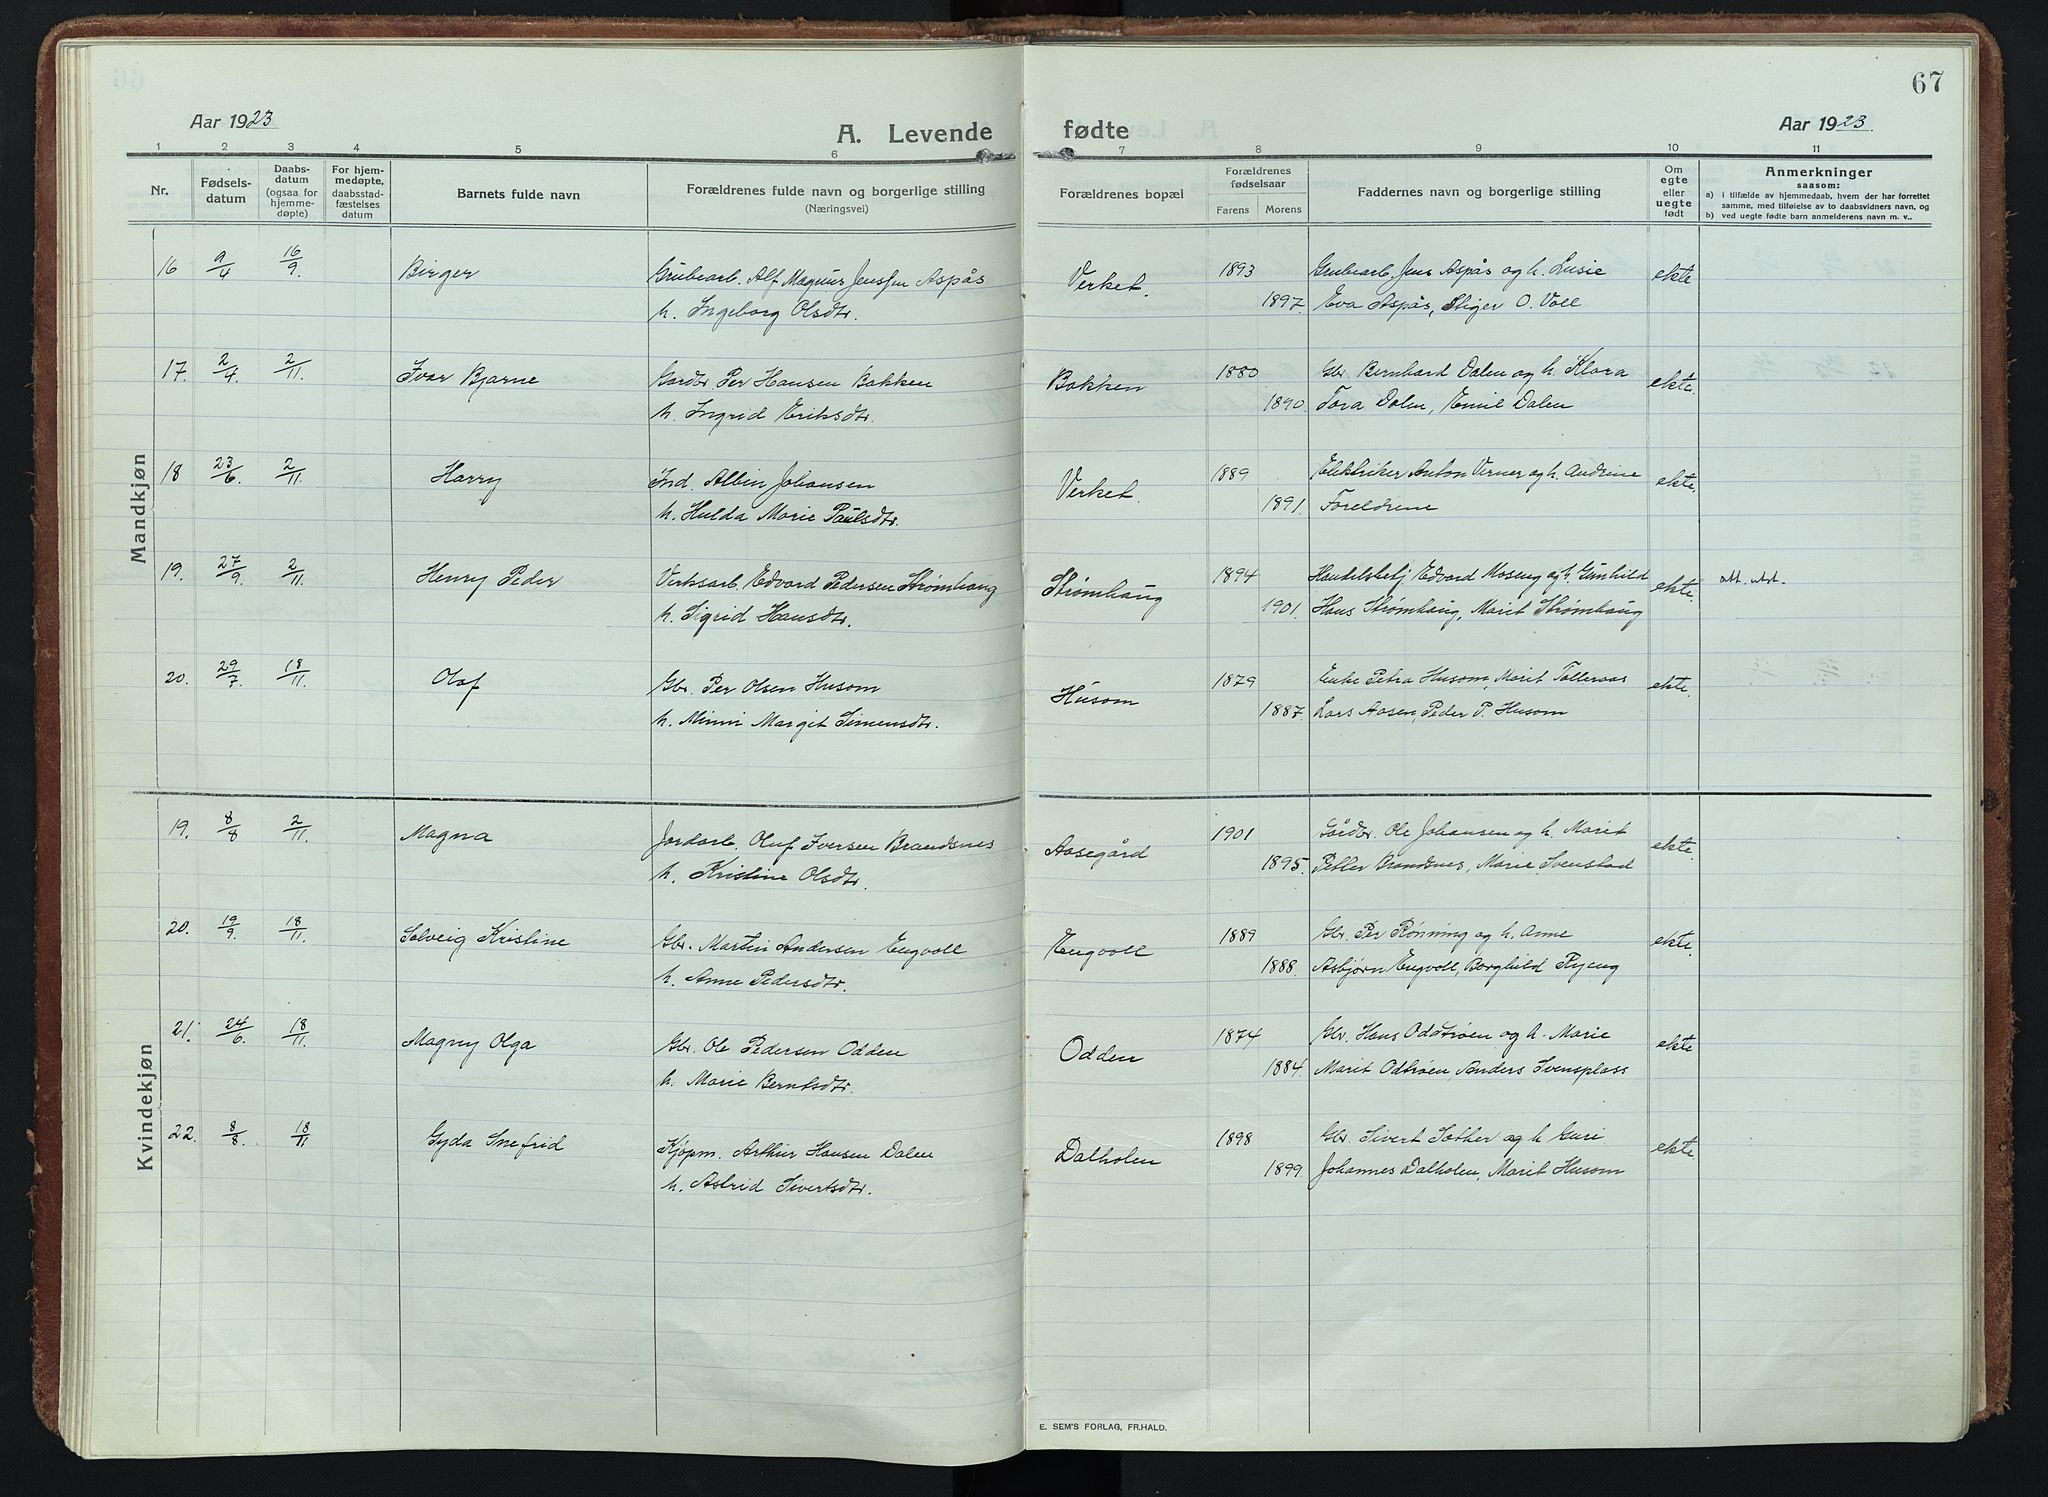 67
Aar 1923
A. Levende fødte
Aar 1923.
1 2 3 4 5 6 7 8 9 10 11
Nr.
Fødsels-
datum
Daabs-
datum
(ogsaa for
hjemme-
døpte)
For hjem-
medøpte,
daabsstad-
fæstelses
datum
Barnets fulde navn
Forældrenes fulde navn og borgerlige stilling
(Næringsvei)
Forældrenes bopæl
Forældrenes
fødselsaar
Farens Morens
Faddernes navn og borgerlige stilling
Om
egte
eller
uegte
født
Anmerkninger
saasom:
a) i tilfælde av hjemmedaab, hvem der har forrettet
samme, med tilføielse av to daabsvidners navn, og
b) ved uegte fødte barn anmelderens navn m. v..
Mandkjøn
16 9/4 16/9. Birger Grubearb. Alf Magnus Jenssen Aspås Verket. 1893 Grubearb. Jens Aspås og h. Lusie ekte
h. Ingeborg Olsdtr. 1897. Eva Aspås, Stiger O. Voll
17. 2/4. 2/11. Ivar Bjarne Gardbr Per Hansen Bakken Bakken 1880 Gbr Bernhard Dalen og h. Klara ekte.
h. Ingrid Eriksdtr. 1890. Tora Dalen, Emil Dalen
18 23/6. 2/11. Harry Ind. Albin Johansen Verket. 1889 Elektriker Anton Verner og h. Andrine ekte.
h. Hulda Marie Paulsdtr. 1891. Foreldrene
19. 27/9. 2/11. Henry Peder Verksarb. Edvard Pedersen Strømhaug Strømhaug 1894 Handelsbetj. Edvard Moseng og h. Gunhild ekte. att. utst.
h. Sigrid Hansdtr. 1901. Hans Strømhaug, Marit Strømhaug
20. 29/7. 18/11. Olaf Gbr. Per Olsen Husom Husom 1879 Enke Petra Husom, Marit Tolleraas ekte.
h. Minni Margit Simensdtr. 1887. Lars Aasen, Peder P. Husom
Kvindekjøn
19. 8/8 2/11. Magna Jordarb. Oluf Iversen Brandsnes Aasegård 1901 Gårdbr. Ole Johansen og h. Marit ekte.
h. Kristine Olsdtr. 1895. Petter Brandsnes, Marie Svenstad
20. 19/9. 18/11. Solveig Kristine Gbr. Martin Andersen Engvoll Engvoll 1889 Gbr. Per Rønning og h. Anne ekte.
h. Anne Pedersdtr. 1888. Asbjørn Engvoll, Borghild Ryeng
21. 24/6. 18/11. Magny Olga Gbr. Ole Pedersen Odden Odden 1874 Gbr. Hans Oddtrøen og h. Marie ekte
h. Marie Berntsdtr. 1884. Marit Odtrøen, Anders Svensplass
22. 8/8. 18/11 Gyda Snefrid Kjøpm. Arthur Hansen Dalen Dalholen 1898 Gbr. Sivert Sæther og h. Guri ekte
h. Astrid Sivertsdtr. 1899. Johannes Dalholen, Marit Husom
E. SEM'S FORLAG, FR.HALD.